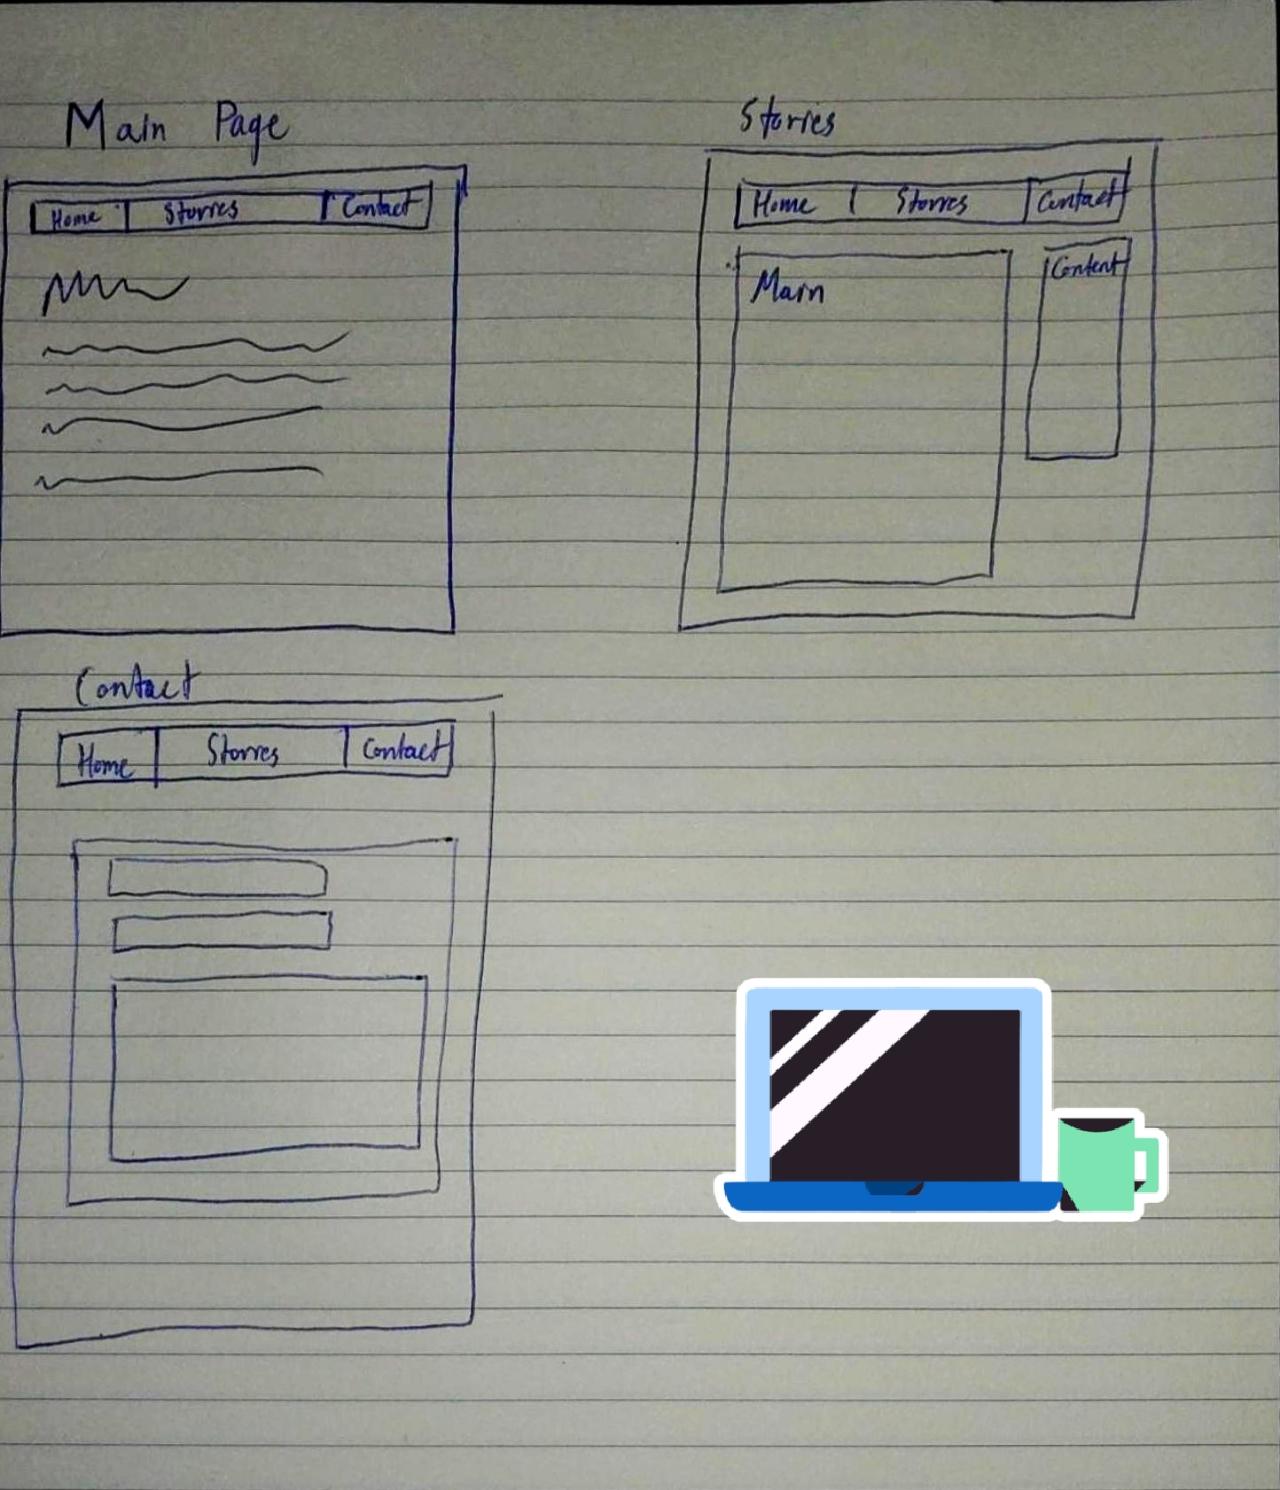 Main Page
Home Storres Contact
Storries
Home Storres Contact
Main
Content
Contact
Home Storres Contact